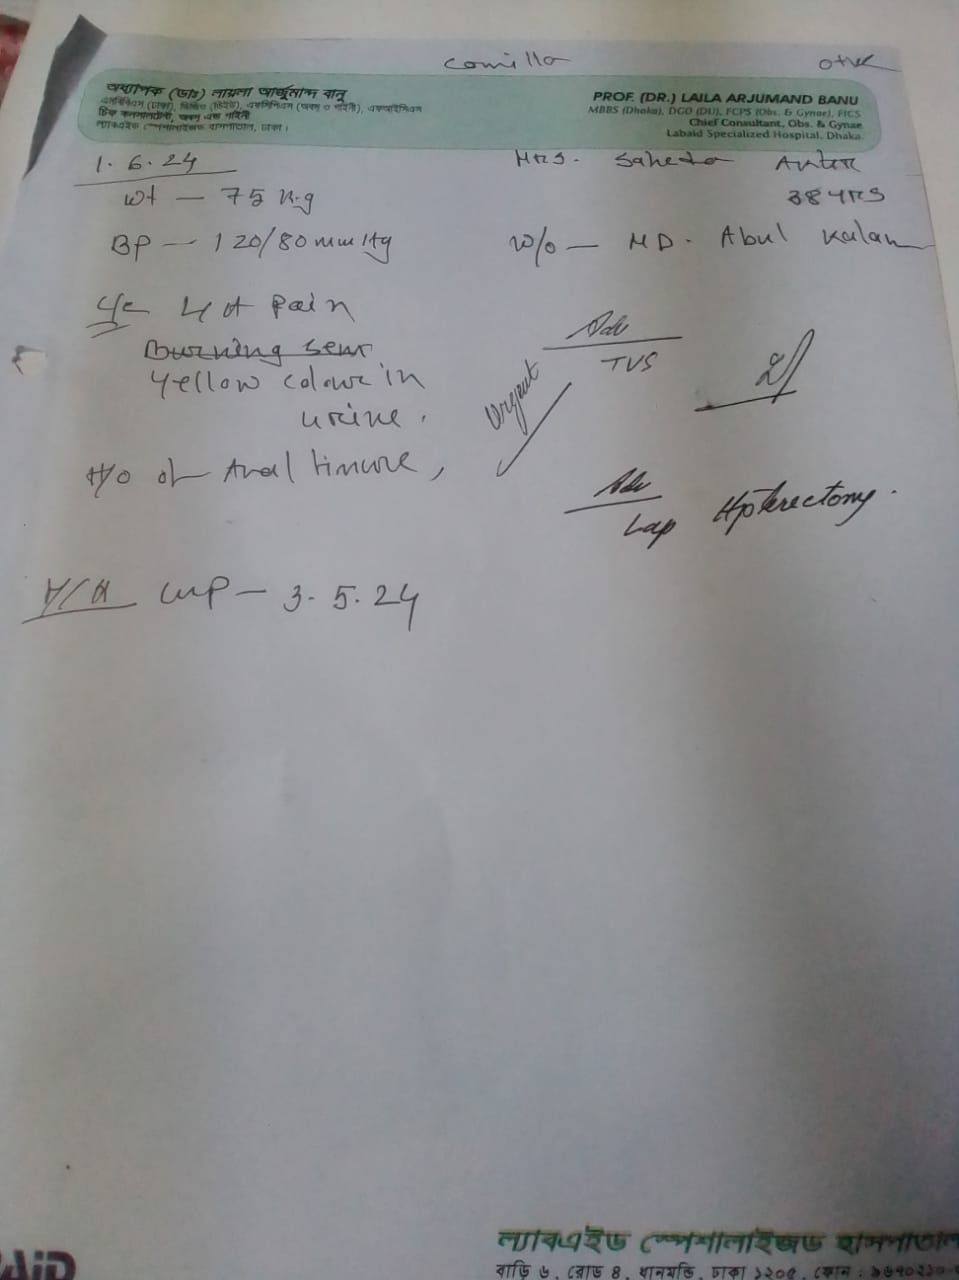 Comilla
O+ve
অধ্যাপক (ডাঃ) লায়লা আর্জুমান্দ বানু
এমবিবিএস (ঢাকা), ডিজিও (ডিইউ), এফসিপিএস (অবস ও গাইনী), এফআইসিএস
চিফ কনসালট্যান্ট, অবস এন্ড গাইনী
ল্যাবএইড স্পেশালাইজড হাসপাতাল, ঢাকা।
PROF. (DR.) LAILA ARJUMAND BANU
MBBS (Dhaka), DGO (DU), FCPS (Obs. & Gynae), FICS
Chief Consultant, Obs. & Gynae
Labaid Specialized Hospital, Dhaka.
1. 6. 24
Wt — 75 Kg
BP — 120/80 mmHg
Mrs. Saheda Akter
38 YRS
W/O — MD. Abul Kalam
C/C Pain
Burning sens.
Yellow colour in
urine.
H/O of Anal
LMP — 3. 5. 24
Adv
TVS
Urgent
Adv
Lap
AID
ল্যাবএইড স্পেশালাইজড হাসপাতাল
বাড়ি ৬, রোড ৪, ধানমন্ডি, ঢাকা ১২০৫, ফোন :